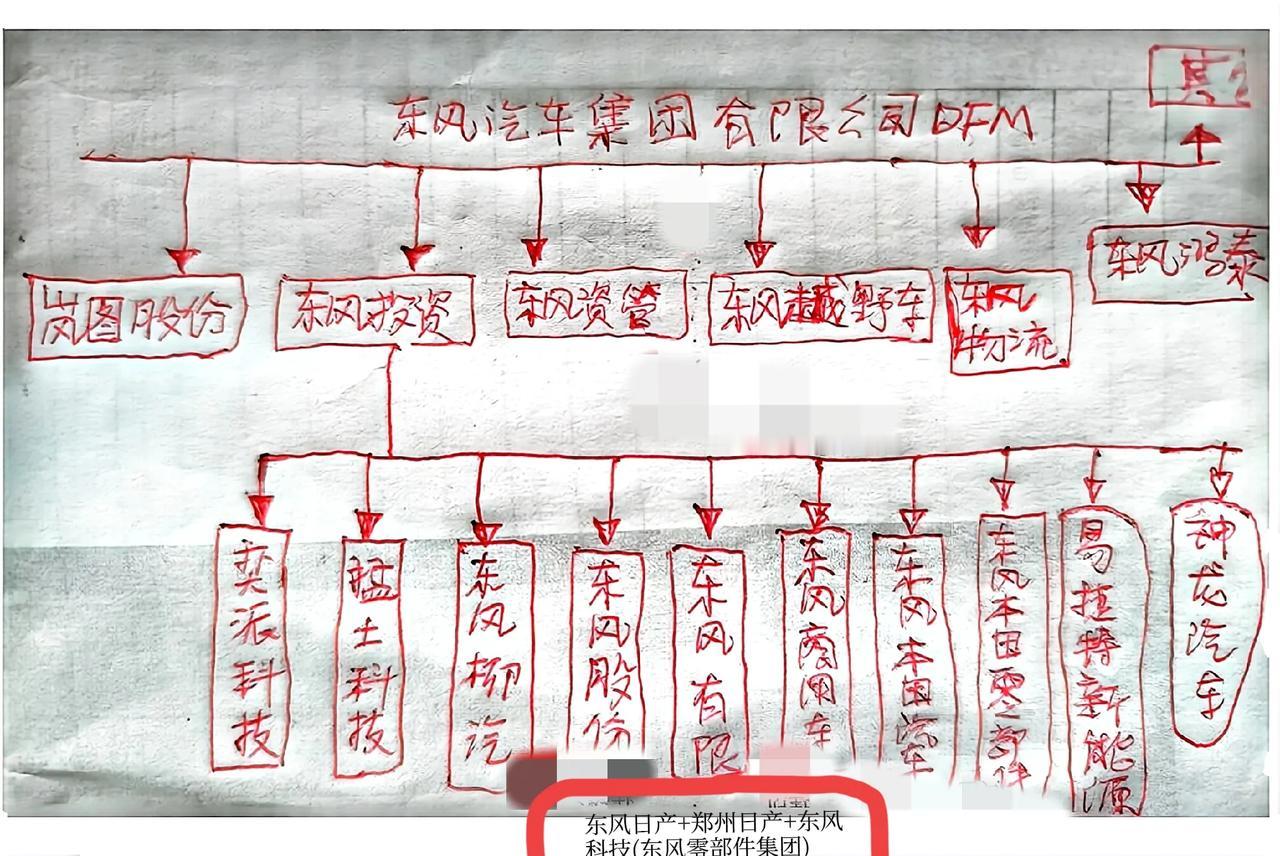 东风汽车集团有限公司DFM
东风鸿泰
岚图股份
东风投资
东风资管
东风越野车
东风
物流
奕派科技
猛士科技
东风柳汽
东风股份
东风有限
东风商用车
东风本田汽车
东风本田零部件
易捷特新能源
神龙汽车
东风日产+郑州日产+东风
科技(东风零部件集团)